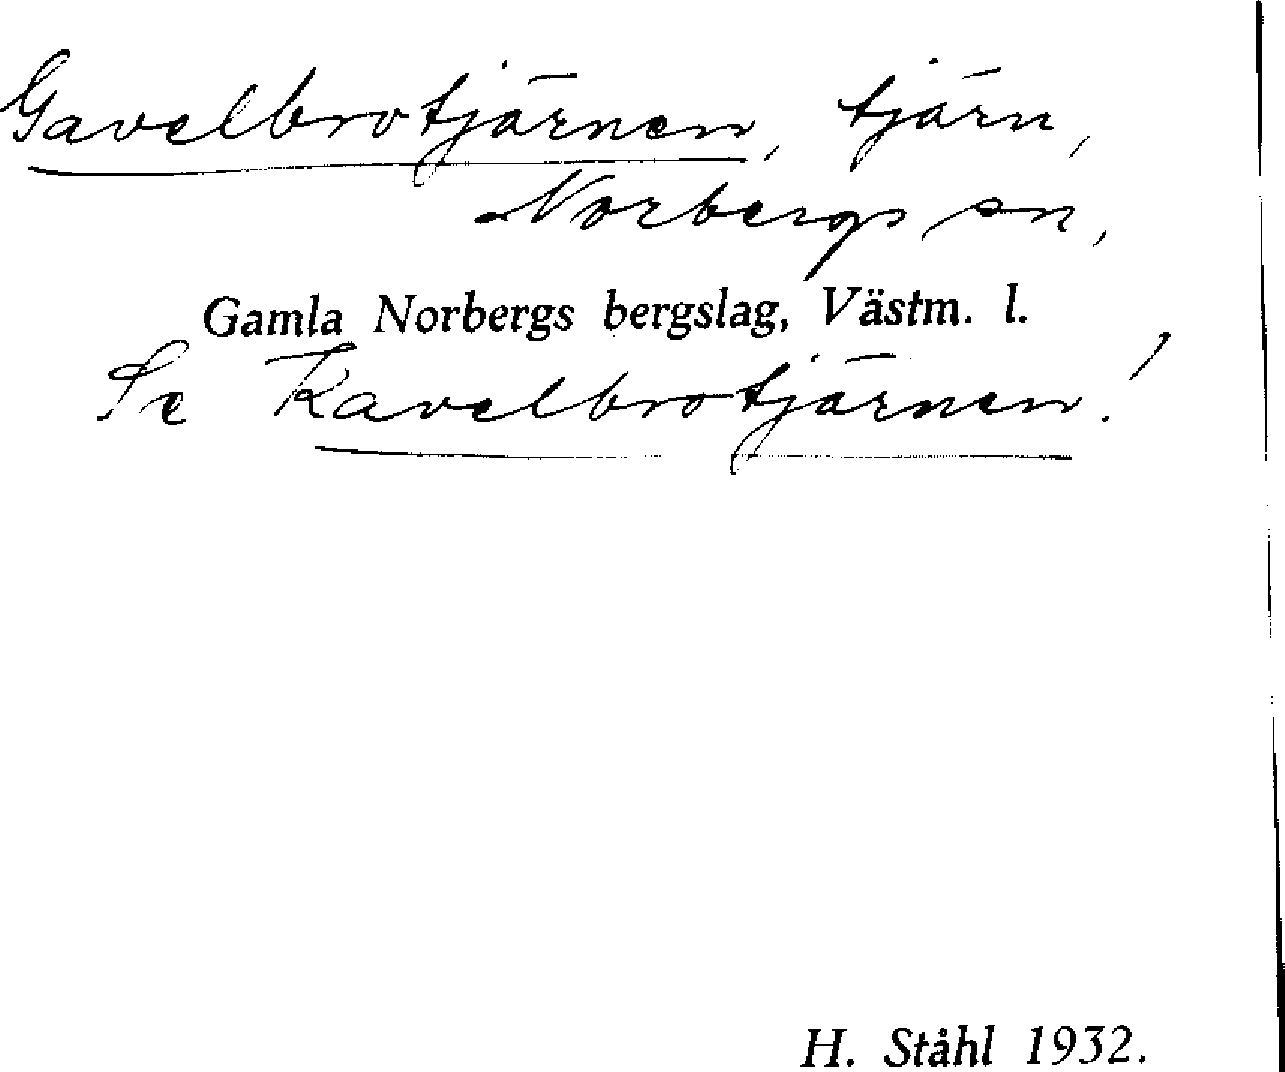 Gavelbrotjärnen, tjärn,
Norbergs sn,
Gamla Norbergs bergslag, Västm. l.
Se Kavelbrotjärnen!
H. Ståhl 1932.